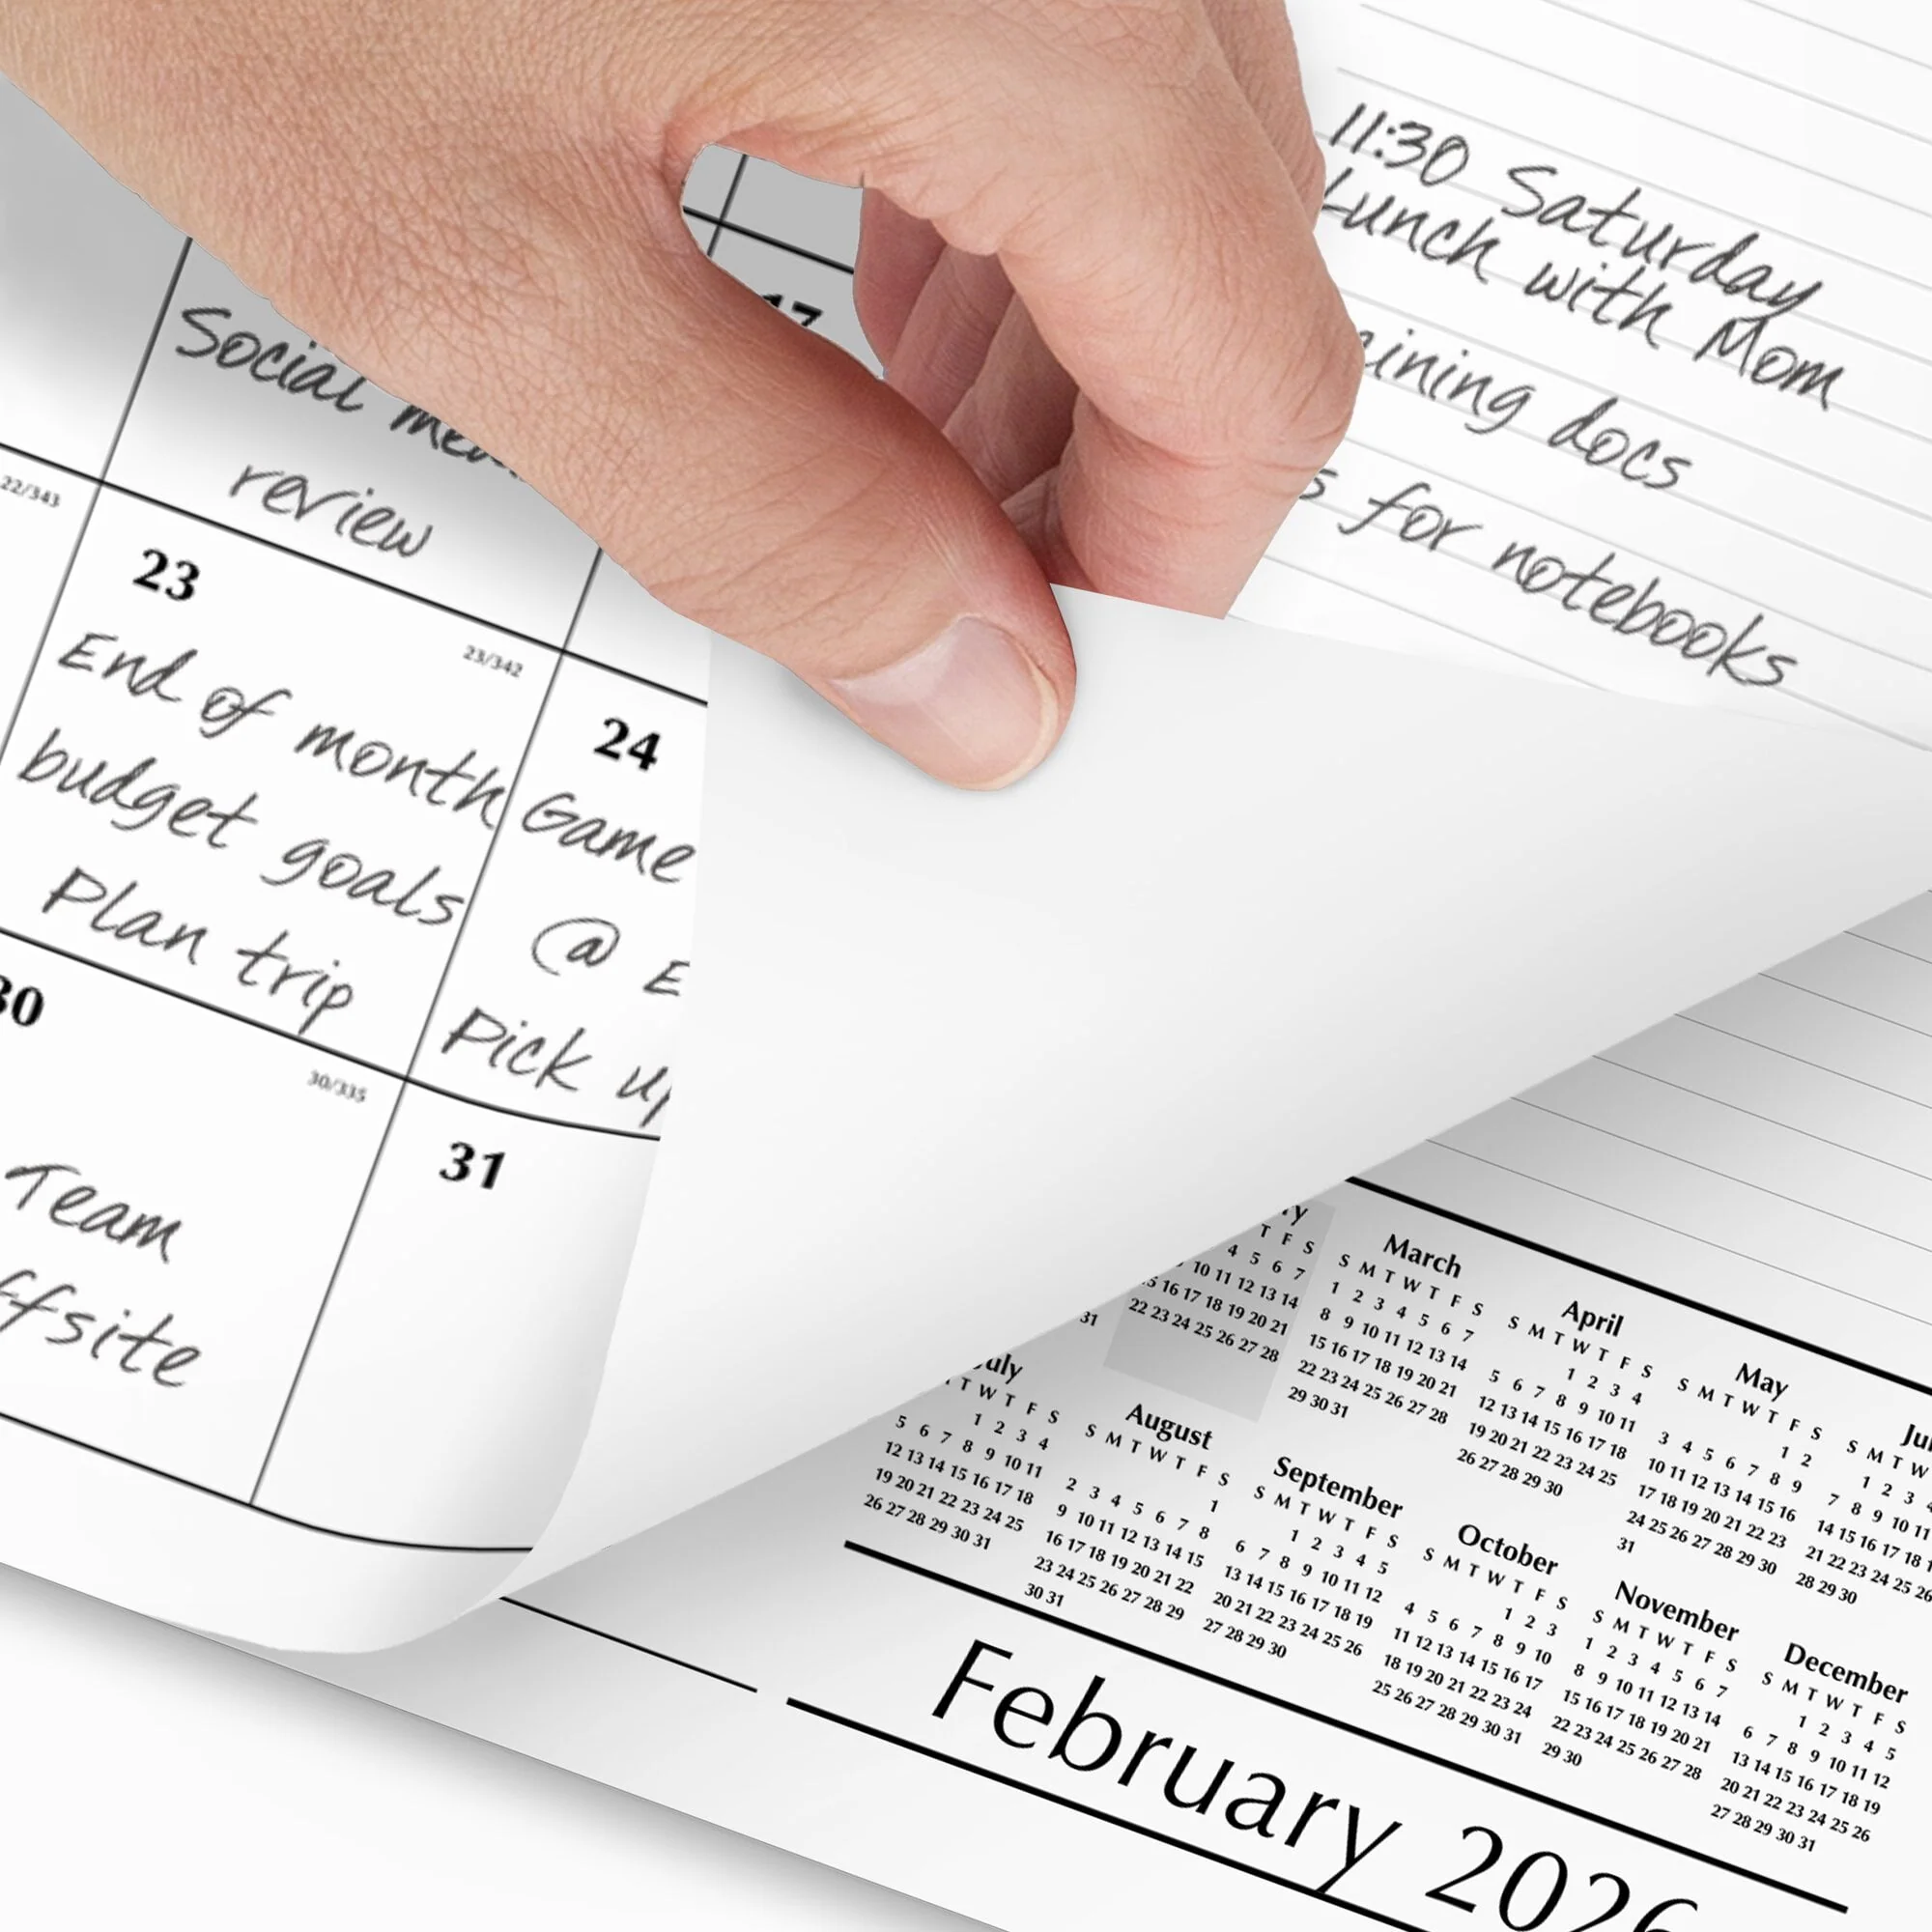 11:30 Saturday
Lunch with Mom
docs
for notebooks
17
Social
review
22/343
23
23/342
End of month
budget goals
Plan trip
24
Game
@ E
Pick up
30
30/335
Team
31
March
S M T W T F S
1 2 3 4 5 6 7
8 9 10 11 12 13 14
15 16 17 18 19 20 21
22 23 24 25 26 27 28
29 30 31
April
S M T W T F S
1 2 3 4
5 6 7 8 9 10 11
12 13 14 15 16 17 18
19 20 21 22 23 24 25
26 27 28 29 30
May
S M T W T F S
1 2
3 4 5 6 7 8 9
10 11 12 13 14 15 16
17 18 19 20 21 22 23
24 25 26 27 28 29 30
31
S M T W
1 2 3
7 8 9 10 11
14 15 16 17 18
21 22 23 24 25 26
28 29 30
T F S
4 5 6 7
10 11 12 13 14
16 17 18 19 20 21
22 23 24 25 26 27 28
31
July
T W T F S
1 2 3 4
5 6 7 8 9 10 11
12 13 14 15 16 17 18
19 20 21 22 23 24 25
26 27 28 29 30 31
August
S M T W T F S
1
2 3 4 5 6 7 8
9 10 11 12 13 14 15
16 17 18 19 20 21 22
23 24 25 26 27 28 29
30 31
September
S M T W T F S
1 2 3 4 5
6 7 8 9 10 11 12
13 14 15 16 17 18 19
20 21 22 23 24 25 26
27 28 29 30
October
S M T W T F S
1 2 3
4 5 6 7 8 9 10
11 12 13 14 15 16 17
18 19 20 21 22 23 24
25 26 27 28 29 30 31
November
S M T W T F S
1 2 3 4 5 6 7
8 9 10 11 12 13 14
15 16 17 18 19 20 21
22 23 24 25 26 27 28
29 30
December
S M T W T F S
1 2 3 4 5
6 7 8 9 10 11 12
13 14 15 16 17 18 19
20 21 22 23 24 25 26
27 28 29 30 31
February 2026